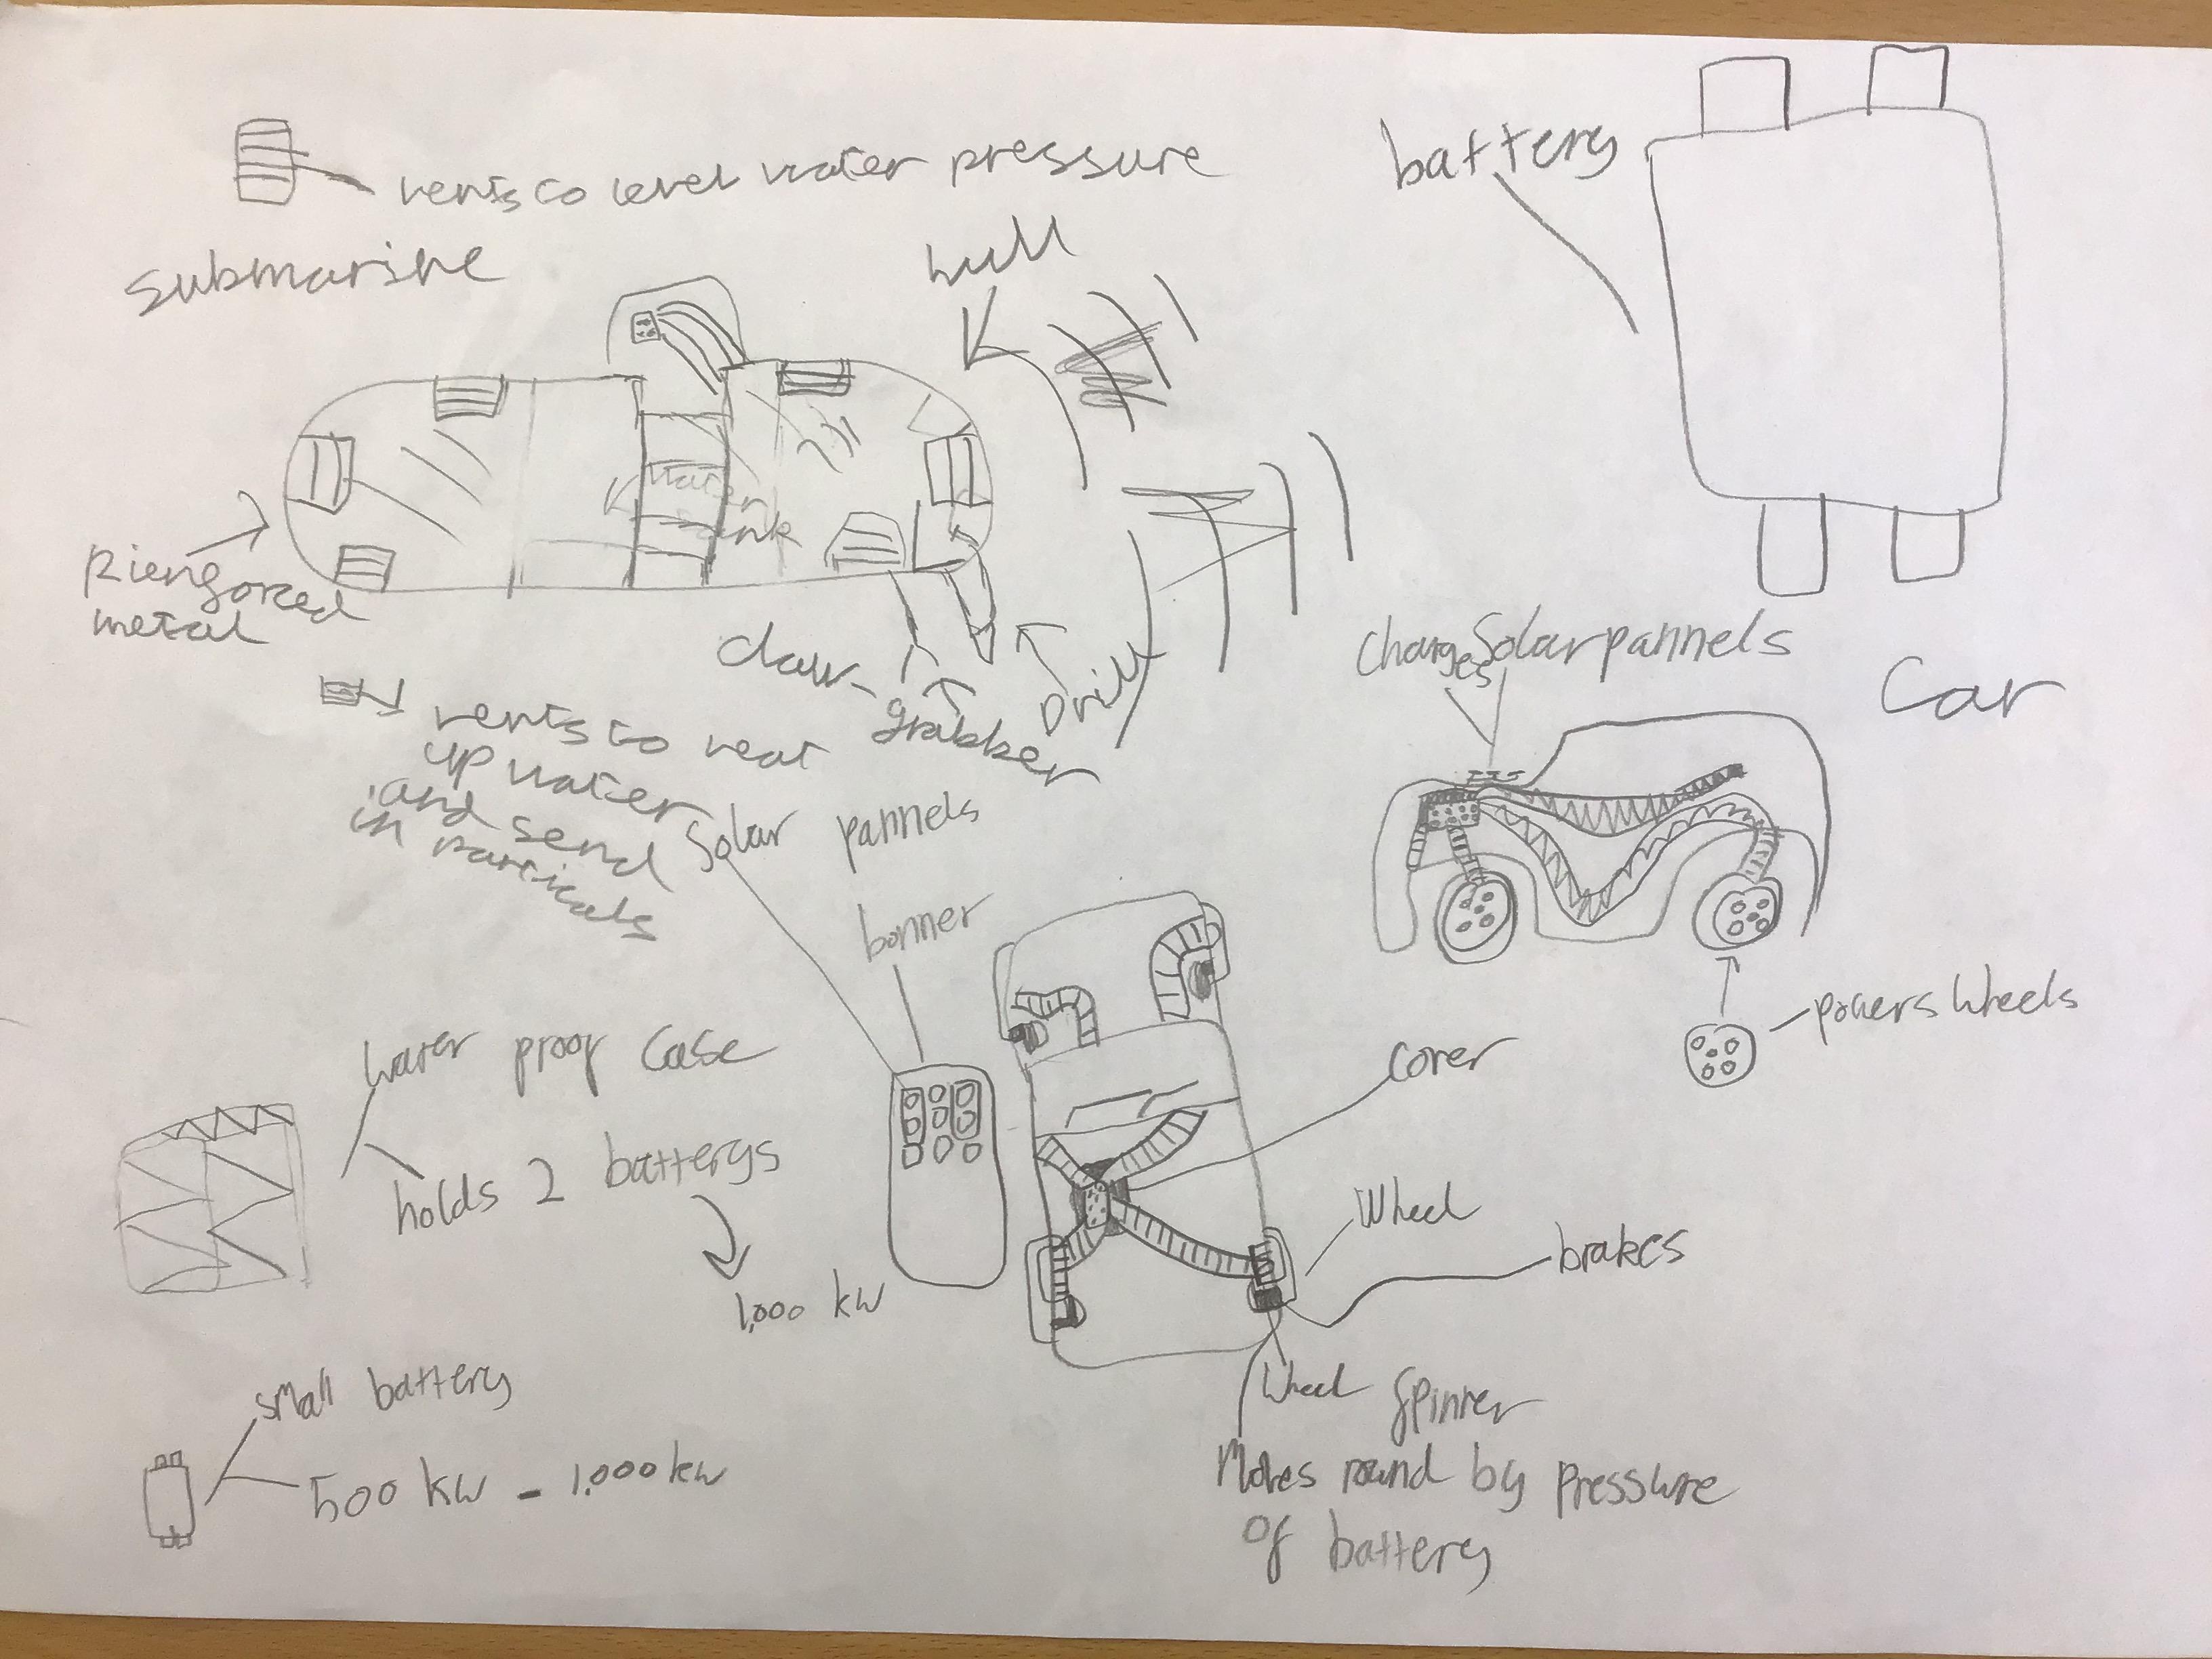 vents to level water pressure
submarine
hull
battery
Riengforced
metal
water
tank
claw-
grabber
Drill
vents to heat
up water
and send
in particals
Charges Solar pannels
Car
Solar pannels
bonner
powers Wheels
water proof Case
holds 2 batterys
1,000 kw
cover
Wheel
brakes
Wheel Spinner
Moves round by pressure
of battery
small battery
500 kw - 1,000 kw